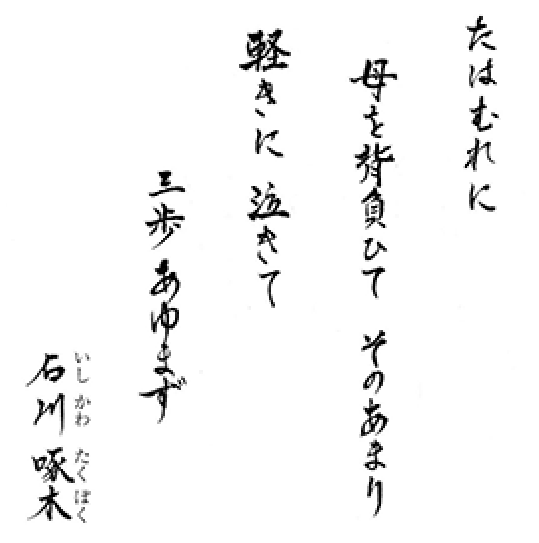 たはむれに
母を背負ひて そのあまり
軽きに 泣きて
三歩 あゆまず
石川 啄木
いしかわ たくぼく